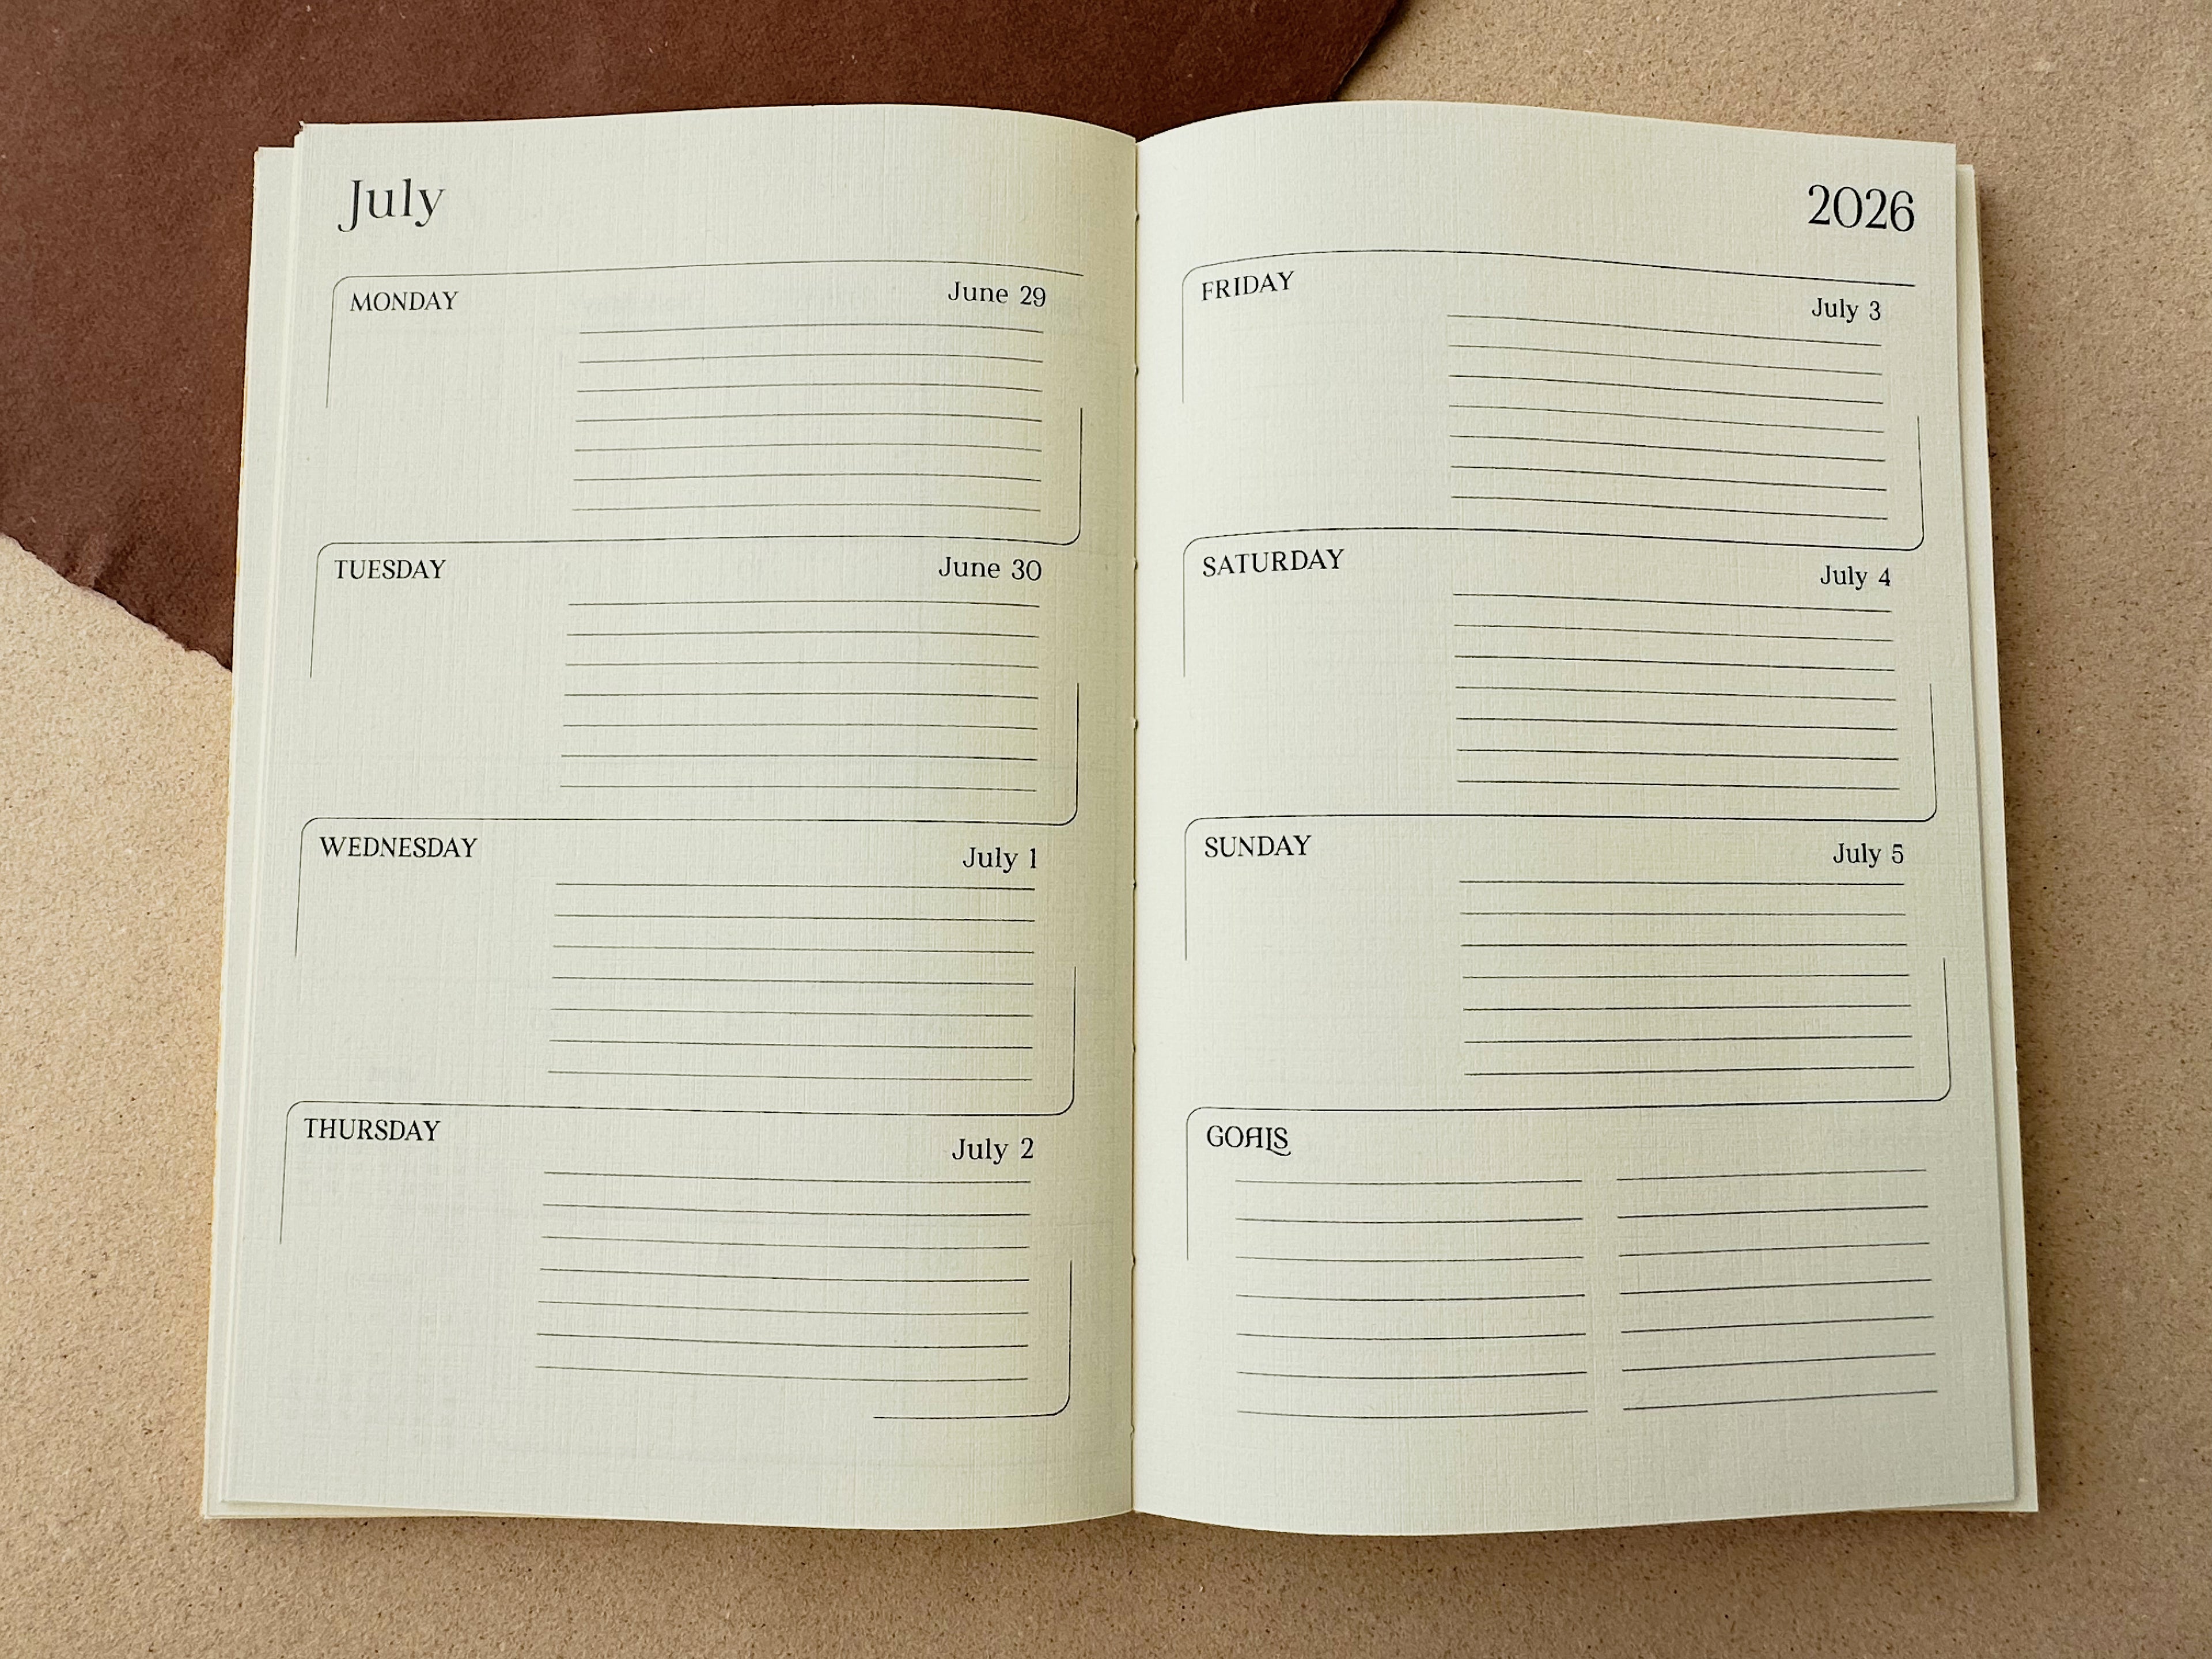 July
MONDAY June 29
TUESDAY June 30
WEDNESDAY July 1
THURSDAY July 2
2026
FRIDAY July 3
SATURDAY July 4
SUNDAY July 5
GOALS